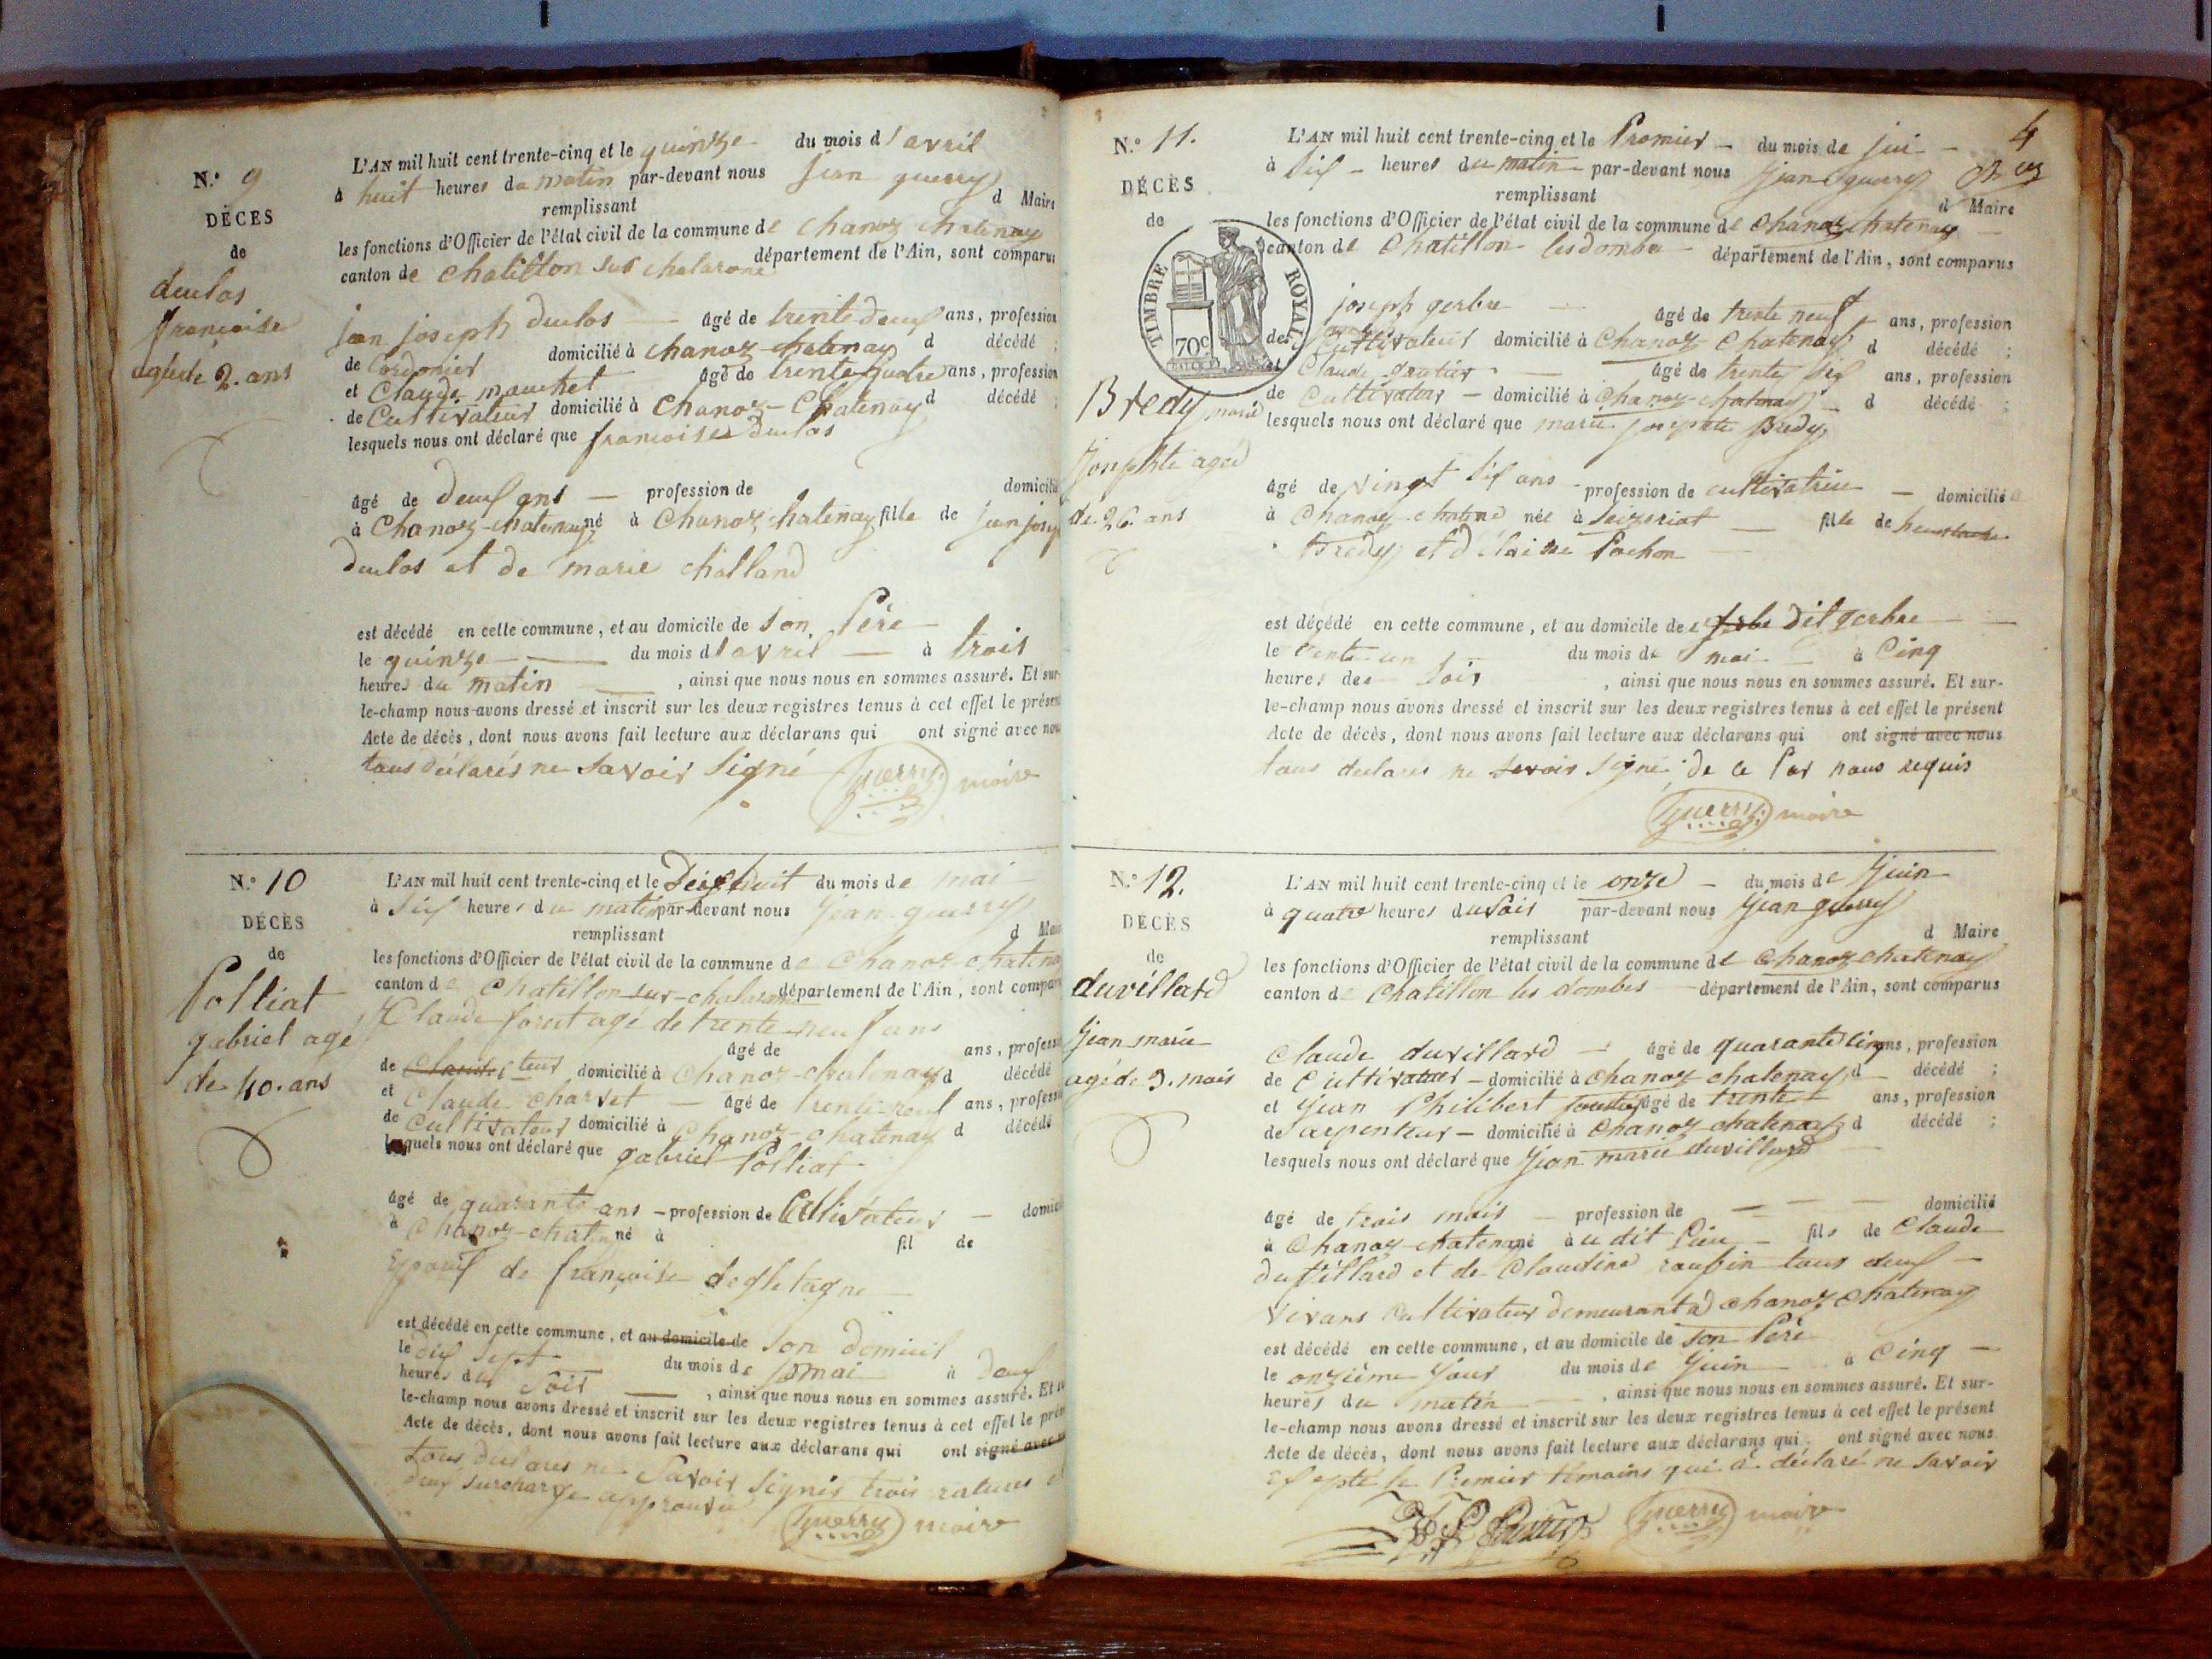 N.° 9
DÉCES
de
duclos
françoise
agée de 2. ans
L'AN mil huit cent trente-cinq et le quinze du mois d'avril
à huit heures du matin par-devant nous jean guerry
remplissant d Maire
les fonctions d'Officier de l'état civil de la commune de chanoz chatenay
canton de chatillon sur chalarone département de l'Ain, sont comparus
jean joseph duclos âgé de trente deux ans, profession
de Cordonier domicilié à chanoz-chatenay d décédé ;
et Claude mauchet âgé de trente quatre ans, profession
de Cultivateur domicilié à chanoz-Chatenay d décédé ;
lesquels nous ont déclaré que françoise duclos
âgé de deux ans — profession de domicilié
à Chanoz-chatenay né à Chanoz chatenay fille de jean josep
duclos et de marie chilland
est décédé en cette commune, et au domicile de son Père
le quinze du mois d'avril à trois
heures du matin , ainsi que nous nous en sommes assuré. Et sur-
le-champ nous avons dressé et inscrit sur les deux registres tenus à cet effet le présent
Acte de décès, dont nous avons fait lecture aux déclarans qui ont signé avec nous
tous déclarés ne savoir signé guerry maire
N.° 10
DÉCÈS
de
Polliat
gabriel agé
de 40. ans
L'AN mil huit cent trente-cinq et le Deix huit du mois de mai
à Six heures du matin par-devant nous jean guerry
remplissant d Mai
les fonctions d'Officier de l'état civil de la commune de Chanoz-chatena
canton de Chatillon sur-chalarone département de l'Ain, sont compar
Claude forat agé de trente neuf ans
âgé de ans, professi
de teur domicilié à Chanoz-chatenay d décédé
et Claude Charvet — âgé de trente neuf ans, professi
de Cultivateur domicilié à Chanoz-chatenay d décédé
lesquels nous ont déclaré que gabriel Polliat
âgé de quarante ans — profession de Cultivateur — domici
à Chanoz-chaten né à fil de
Epoux de françoise
est décédé en cette commune, et au domicile de son domicil
le dix sept du mois de mai à deux
heures du soir , ainsi que nous nous en sommes assuré. Et su
le-champ nous avons dressé et inscrit sur les deux registres tenus à cet effet le prés
Acte de décès, dont nous avons fait lecture aux déclarans qui ont signé avec n
tous declares ne savoir signés trois ratures et
deux surcharge approuvée guerry maire
4
N.° 11.
DÉCÈS
de
TIMBRE ROYAL
70c
Bredy marie
josephte agée
de 26 ans
L'AN mil huit cent trente-cinq et le Premier — du mois de jui —
à Six — heures du matin — par-devant nous jean guerry
remplissant d Maire
les fonctions d'Officier de l'état civil de la commune de Chanoz chatenay
canton de Chatillon les dombes département de l'Ain, sont comparus
joseph gerbre âgé de trente neuf ans, profession
de Cultivateur domicilié à Chanoz Chatenay d décédé ;
et Claude gratier âgé de trente six ans, profession
de Cultivateur — domicilié à Chanoz-chatenay d décédé ;
lesquels nous ont déclaré que marie josephte Bredy
âgé de vingt six ans — profession de cultivatrice — domicilié
à Chanoz chatené née à Seizeriat fille de
Bredy et d Claine Pochon
est décédé en cette commune, et au domicile de dit gerbre
le trente un du mois de mai à Cinq
heures de soir , ainsi que nous nous en sommes assuré. Et sur-
le-champ nous avons dressé et inscrit sur les deux registres tenus à cet effet le présent
Acte de décès, dont nous avons fait lecture aux déclarans qui ont signé avec nous
tous declarés ne savoir signé de ce Par nous requis
guerry maire
N.° 12.
DÉCÈS
de
duvillard
jean marie
agé de 3. mois
L'AN mil huit cent trente-cinq et le onze — du mois de juin
à quatre heures du soir par-devant nous jean guerry
remplissant d Maire
les fonctions d'Officier de l'état civil de la commune de Chanoz chatenay
canton de Chatillon les dombes département de l'Ain, sont comparus
Claude duvillard — âgé de quarante cinq ans, profession
de Cultivateur — domicilié à Chanoz chatenay d décédé ;
et jean Philibert âgé de trente ans, profession
de arpenteur — domicilié à Chanoz chatenay d décédé ;
lesquels nous ont déclaré que jean marie duvillard
âgé de trois mois — profession de — — — domicilié
à Chanoz chatenay né au dit lieu — fils de Claude
duvillard et de Claudine raufin tous deux —
vivans cultivateur demeurant à Chanoz Chatenay
est décédé en cette commune, et au domicile de son Père
le onzième jour du mois de juin à Cinq —
heures du matin , ainsi que nous nous en sommes assuré. Et sur-
le-champ nous avons dressé et inscrit sur les deux registres tenus à cet effet le présent
Acte de décès, dont nous avons fait lecture aux déclarans qui ont signé avec nous
excepté le Premier témoins qui a déclaré ne savoir
guerry maire